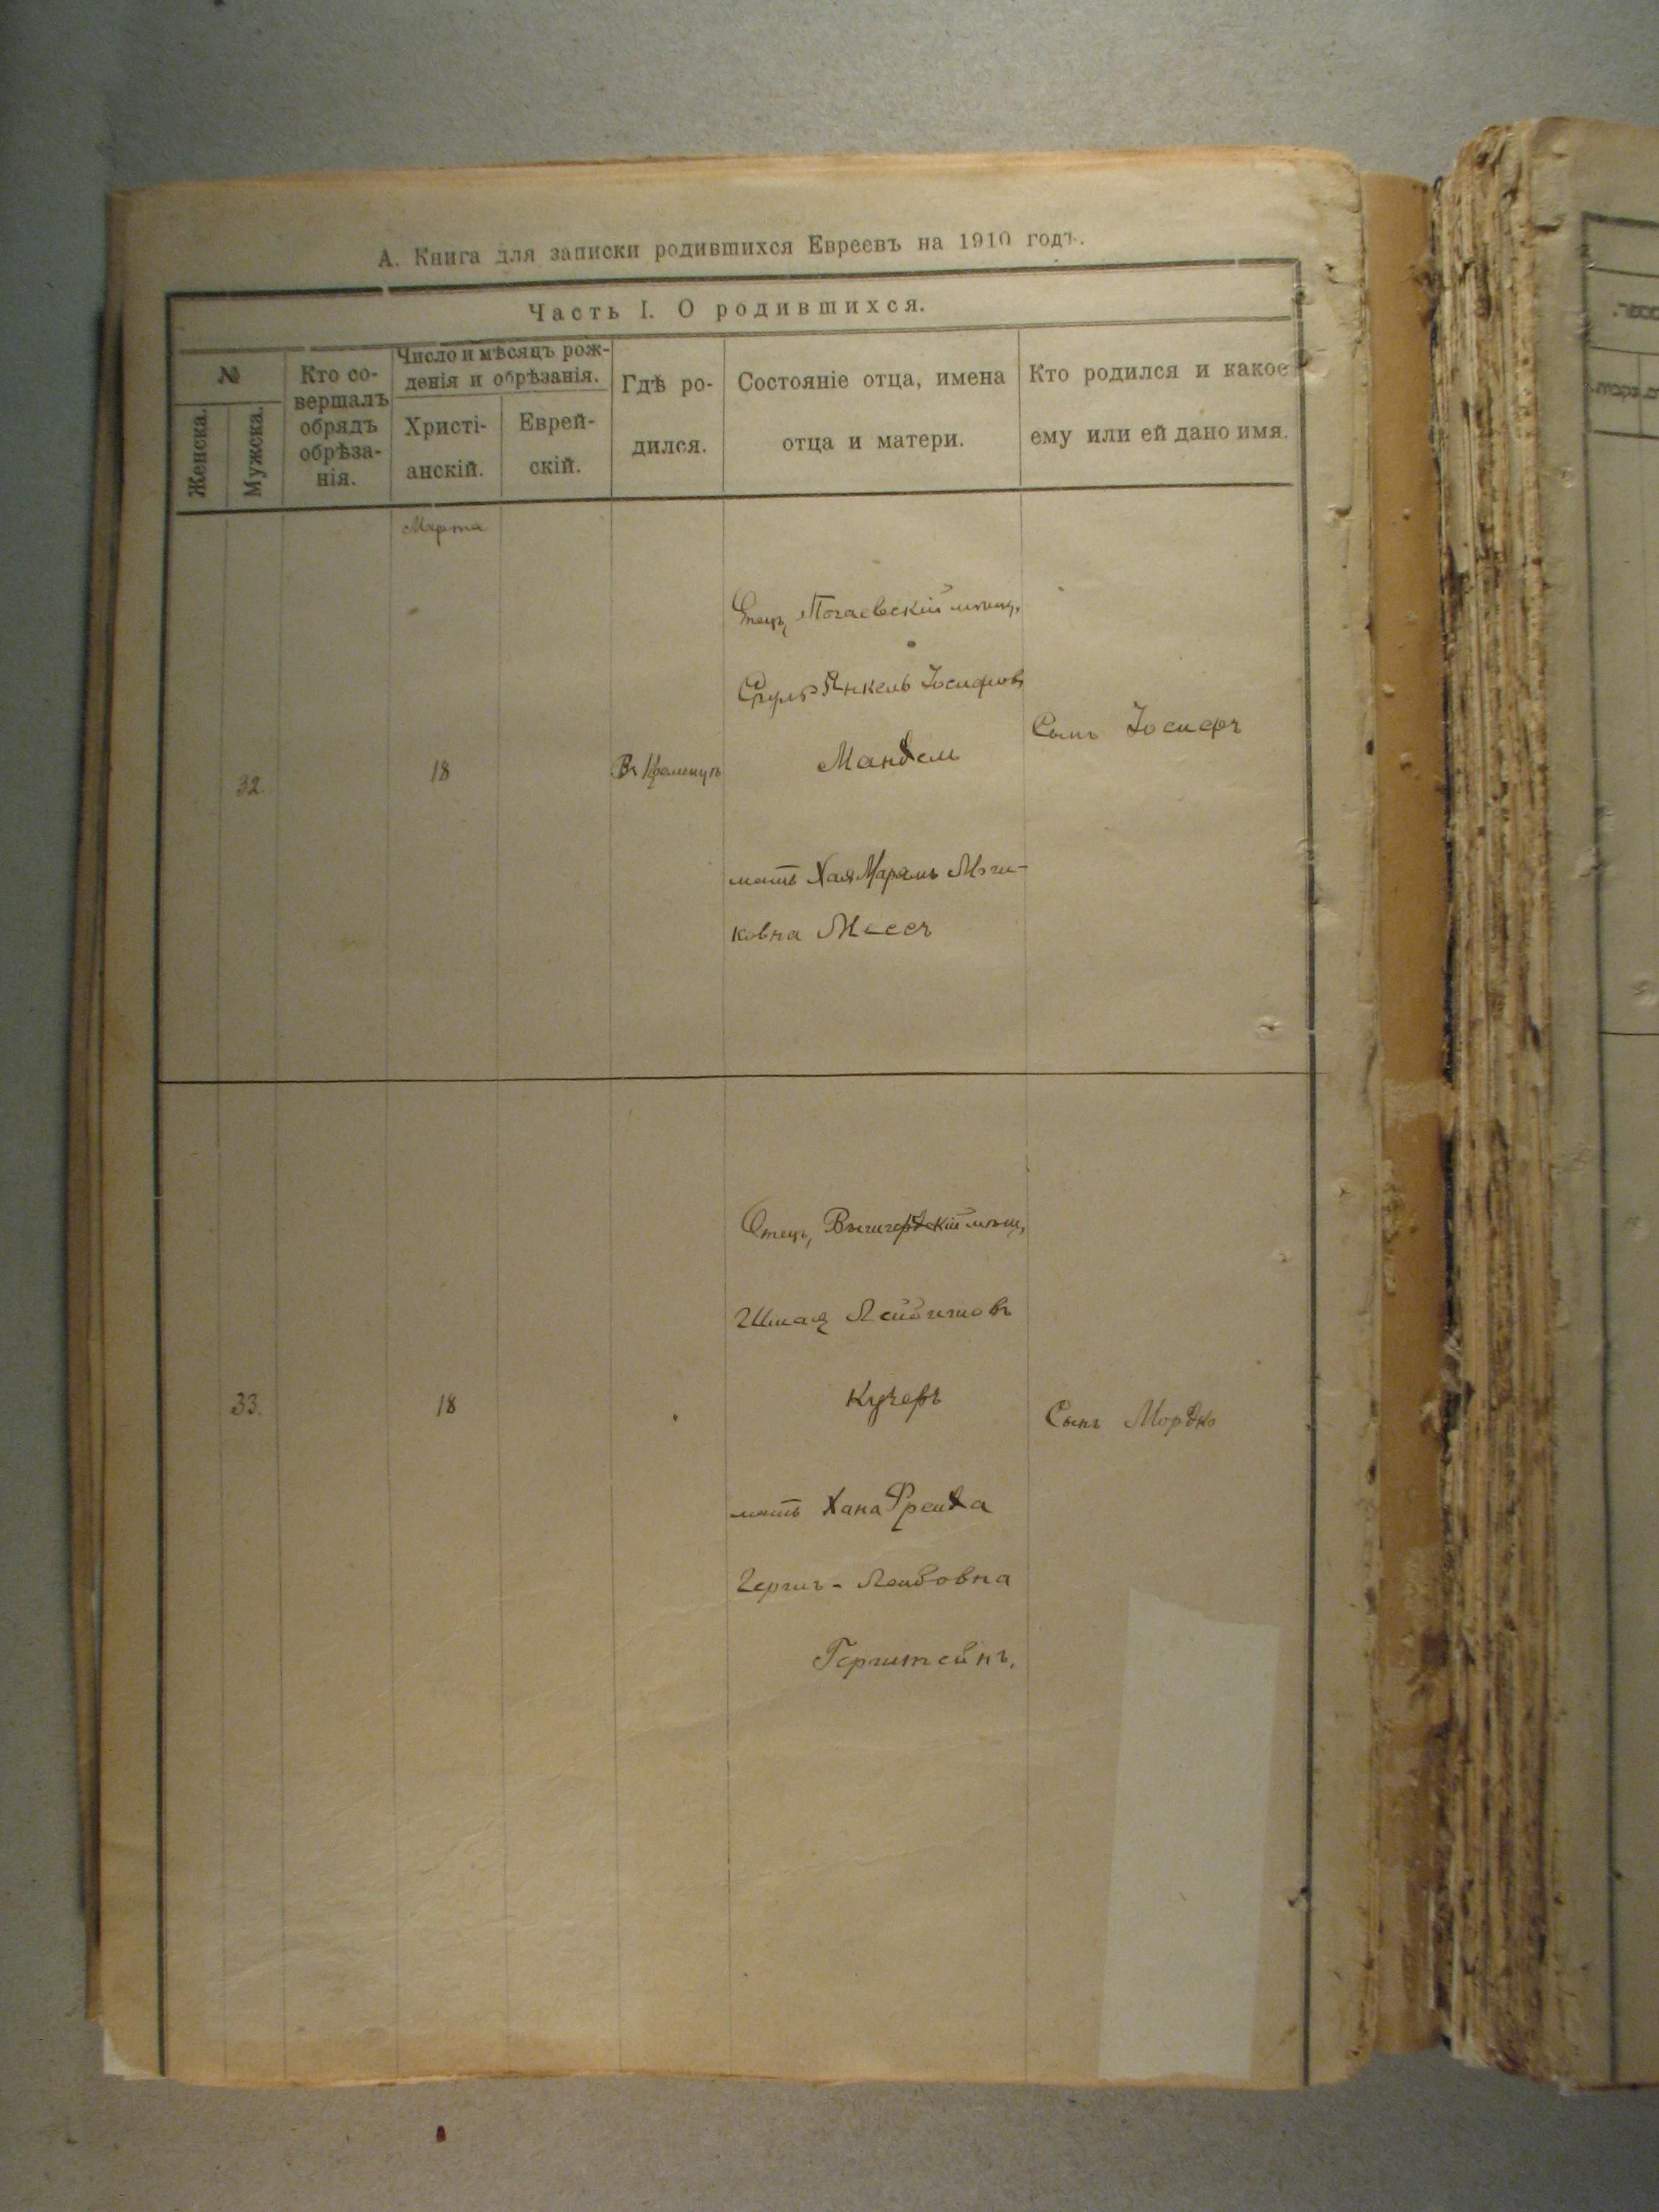 А. Книга для записки родившихся Евреевъ на 1910 годъ.
Часть I. О родившихся.
№
Женска.
Мужска.
Кто со-
вершалъ
обрядъ
обрѣза-
нія.
Число и мѣсяцъ рож-
денія и обрѣзанія.
Христі-
анскій.
Еврей-
скій.
Гдѣ ро-
дился.
Состояніе отца, имена
отца и матери.
Кто родился и какое
ему или ей дано имя.
Марта
32.
18
Отецъ, Почаевскій мѣщ.
Сруль Янкель Іосифовъ
Мандель
мать Хая Марямъ
ковна
Сынъ Іосифъ
33.
18
Отецъ, мѣщ.
Кучеръ
мать Хана Фрейда
Гершъ-Лейбовна
Герштейнъ.
Сынъ Мордко